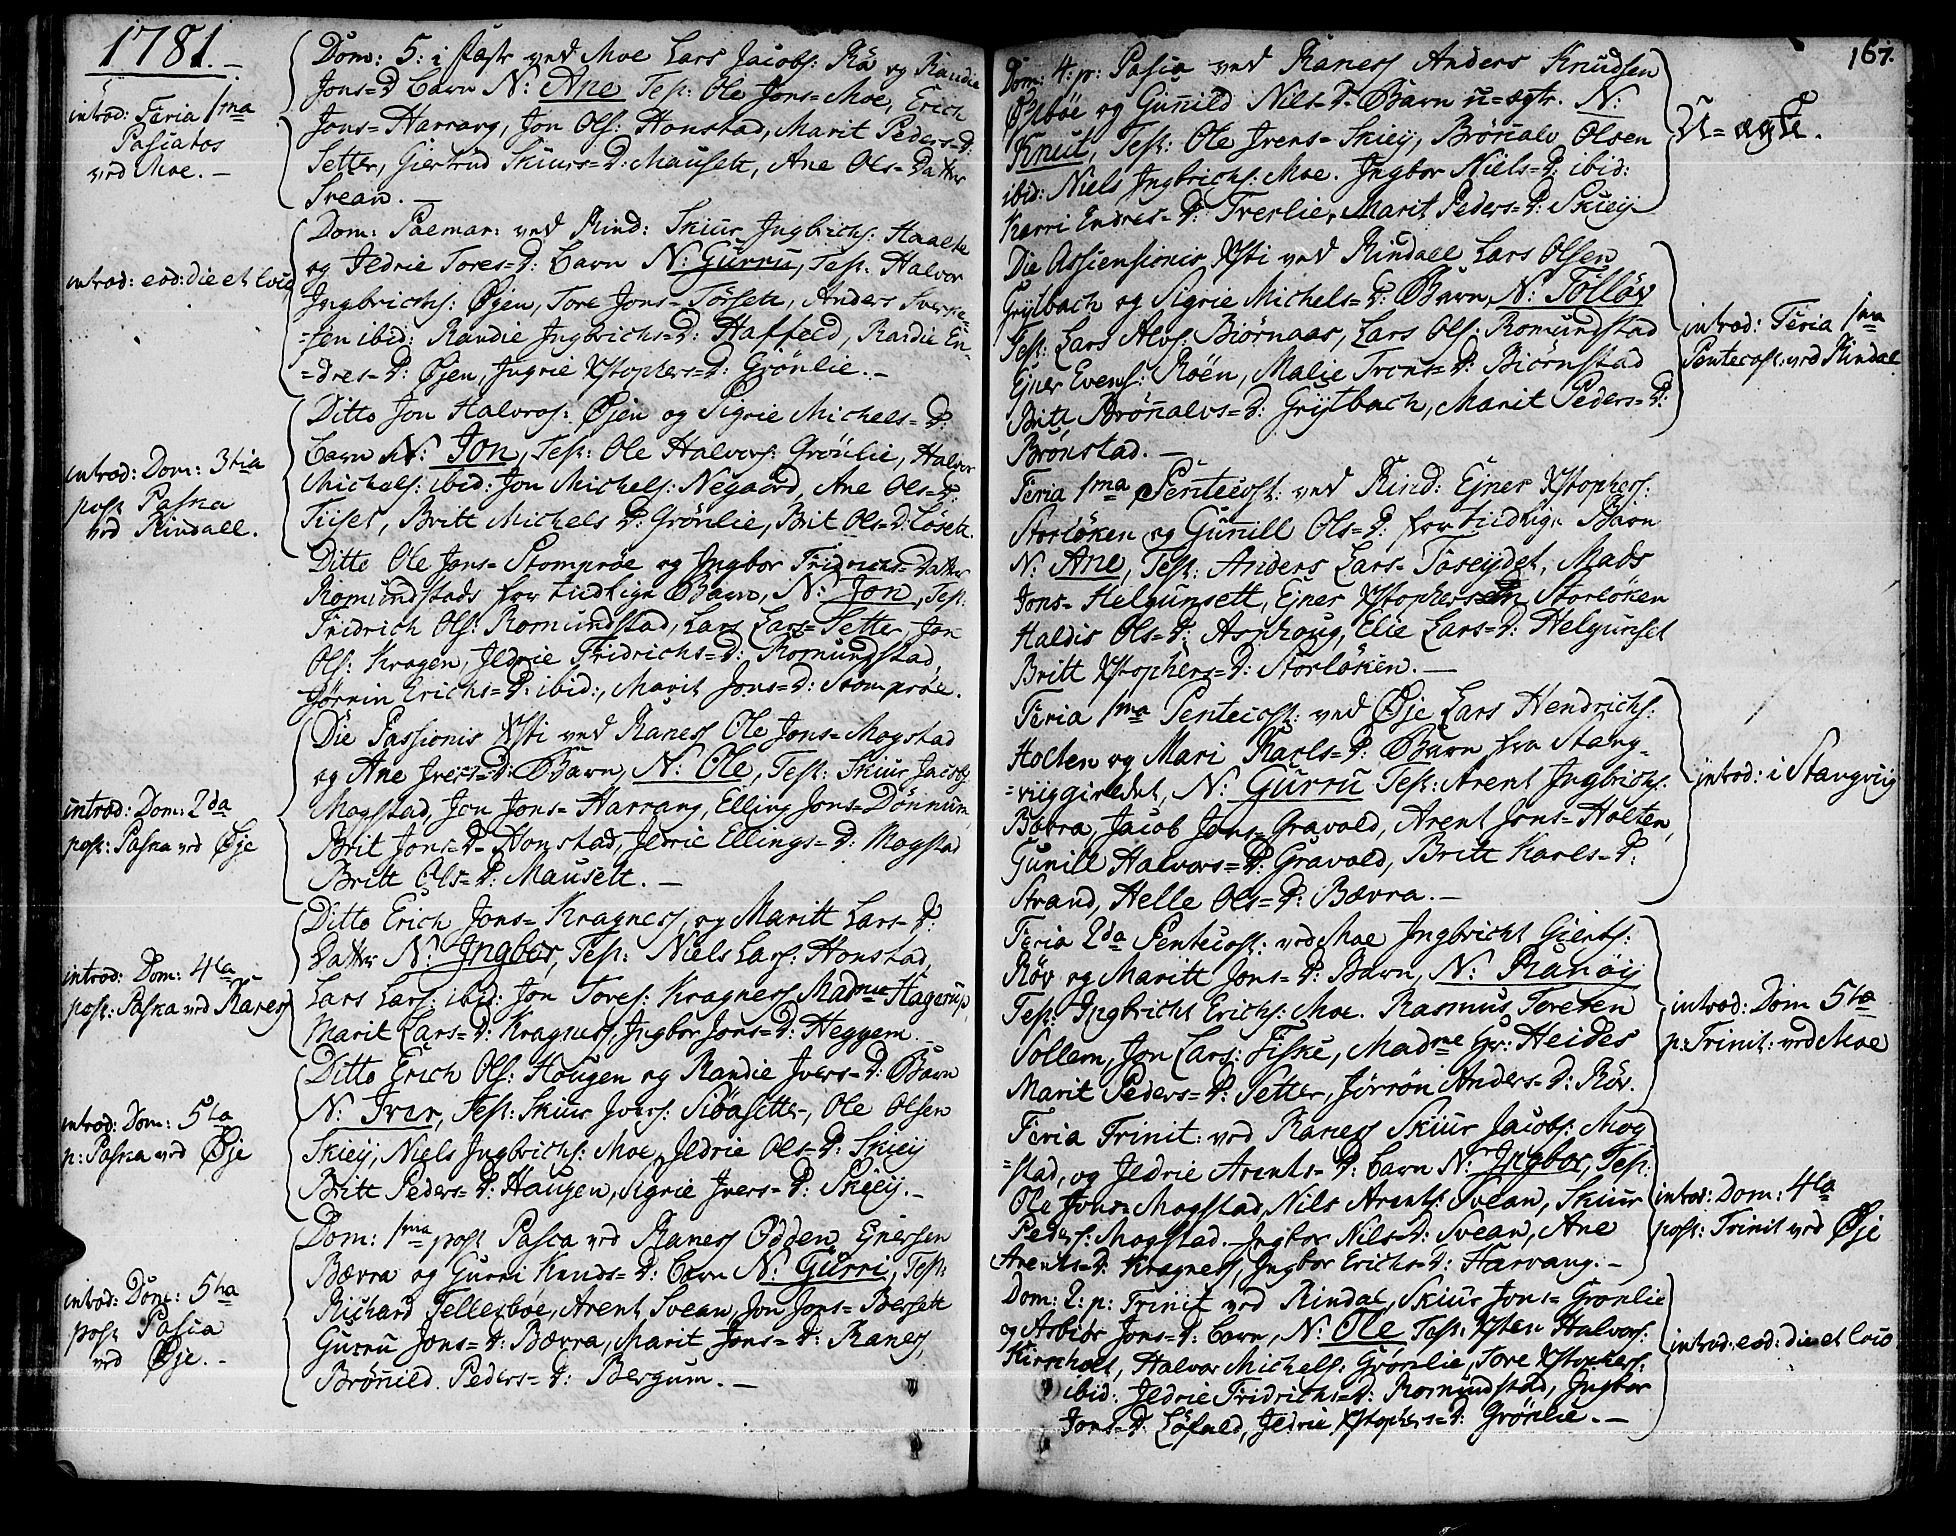 1781.-
introd: Feria 1ma
Paschatos
ved Moe. -
Dom: 5: i Faste ved Moe Lars Jacobs: Rø og Randie
Jons=D Barn N: Ane Test: Ole Jons= Moe, Erich
Jons= Harrang, Jon Ols: Honstad, Marit Peders=D:
Setter, Giertrud Skiuers=D: Mausett, Ane Ols= Datter
Svean. -
introd: eod: die et loco
Dom: Palmar: ved Rind: Skiur Ingbrichs: Haaltte
og Jldrie Tores=D: Barn N: Gurru, Test: Halvor
Ingbrichs: Øyen, Tore Jons= Törsett, Anders Sverke=
=sen ibid: Randie Ingbrichs=D: Haffeld, Randie En=
=dres=D: Øyen, Ingrie Xstophers=D: Grönlie. -
introd: Dom: 3tia
post Pasca
ved Rindall.
Ditto Jon Halvors: Øyen og Sigrie Michels=D:
Barn N: Jon, Test: Ole Halvors: Grönlie, Halvor
Michels: ibid: Jon Michels: Negaard, Ane Ols=D:
Tiiset, Britt Michels D: Grönlie, Brit Ols=D: Löset.
Ditto Ole Jons= Stomprøe og Ingbor Fridrichs=Datter
Romundstads for tiidlig Barn, N: Jon, Test:
Fridrich Ols: Romundstad, Lars Lars= Setter, Jon
Ols: Kragen, Jldrie Fridrichs=D: Romundstad,
Jörrin Erichs=D: ibid:, Marit Jons=D: Stomprøe.
introd: Dom: 2da
post: Pasca ved Øje
Die Passionis Xsti ved Raness Ole Jons= Mogstad
og Ane Ivers=D: Barn, N: Ole, Test: Skiur Jacobs:
Mogstad, Jon Jons= Harrang, Elling Jons= Dönnum,
Brit Jons=D= Honstad, Jldrie Ellings=D: Mogstad
Britt Ols=D: Mausett. -
introd: Dom: 4ta
post: Pasca ved Raness
Ditto Erich Jons= Kragness, og Maritt Lars=D:
Datter N: Ingbor, Test: Niels Lars: Honstad,
Lars Lars: ibid: Jon Tores: Kragness Madme Hagerup,
Marit Lars=D: Kragness, Ingbor Jons=D: Heggem. -
introd: Dom: 5ta
p: Pasca ved Øje
Ditto Erich Ols: Hougen og Randie Ivers=D: Barn
N: Iver, Test: Skiur Ivers: Siöasetter, Ole Olsen
Skieij, Niels Ingbrichs: Moe, Jldrie Ols=D: Skieij
Britt Peders=D: Haugen, Sigrie Ivers=D: Skieij. -
introd: Dom: 5ta
post Pasca
ved Øje. -
Dom: 1ma post Pasca ved Raness Odden Ejnersen
Bævra og Gurri Knuds=D: Barn N: Gurri, Test:
Richard Tellesbøe, Arent Svean, Jon Jons= Bersett
Gurru Jons=D: Bævra, Marit Jons=D: Raness,
Brönild Peders=D: Bergum. -
167.
Dom: 4: p: Pasca ved Raness Anders Knudsen
Østbøe og Gunild Nils=D= Barn u=ægte. N:
Knut, Test: Ole Ivers= Skieij, Brönalv Olsen
ibid: Niels Ingbrichs: Moe. Ingbor Niels=D: ibid:
Karri Endres=D: Treelie, Marit Peders=D: Skieij
U=ægte.
Die Assiensionis Xsti ved Rindall Lars Olsen
Grytbach og Sigrie Michels=D: Barn, N: Tölløv
Test: Lars Alvs: Biörnaas, Lars Ols: Romundstad
Ejner Evens: Röen, Malie Trons=D: Biörnstad
Britt Brönalvs=D: Grytbach, Marit Peders=D:
Brönstad. -
introd: Feria 1ma
Pentecost: ved Rindal
Feria 1ma Pentecost: ved Rind: Ejner Xstophers:
Storlöken og Gunill Ols=D: for tiidlig Barn
N: Ane, Test: Anders Lars= Taseydet, Mads
Jons= Helgunsett, Ejner Xstophers= Storlöken
Haldis Ols=D: Asphoug, Elie Lars=D: Helgunset
Britt Xstophers=D: Storlöken. -
Feria 1ma Pentecost: ved Øje Lars Hendrichs:
Holten og Mari Karls=D: Barn fra Stang=
=viig gieldet, N: Gurru Test: Arent Ingbrichs:
Bøvra, Jacob Jons= Gravold, Arent Jons= Holten,
Gunill Halvors=D: Gravold, Britt Karls=D:
Strand, Helle Ols=D: Bævra. -
introd: i Stangviig
Feria 2da Pentecost: ved Moe Ingbricht Gierts:
Röv og Maritt Jons=D: Barn, N: Ranøij
Test: Ingbricht Erichs: Moe. Rasmus Toresen
Sollem, Jon Lars: Fiske, Madme Gr: Heides
Marit Peders=D: Setter, Jörrön Anders=D: Röv.
introd: Dom 5ta
p: Trinit: ved Moe
Feria Trinit: ved Raness Skiur Jacobs: Mog=
=stad, og Jldrie Arents=D: Barn N: Ingbor, Test:
Ole Jons= Mogstad, Nils Arents: Svean, Skiur
Peders: Mogstad. Ingbor Nils=D: Svean, Ane
Arents=D: Kragness, Ingbor Erichs=D: Harrang. -
introd: Dom: 4ta
post: Trinit ved Øje
Dom: 2: p: Trinit ved Rindal, Skiur Jons= Grönlie
og Asbiør Jons=D: Barn, N: Ole Test: Xsten Halvors:
Kirscholt, Halvor Michels: Grönlie, Tore Xstophers:
ibid: Jldrie Fridrichs=D: Romundstad, Ingbor
Jons=D: Löfald, Jldrie Xstophers=D: Grönlie. -
introd: eod: die et loco